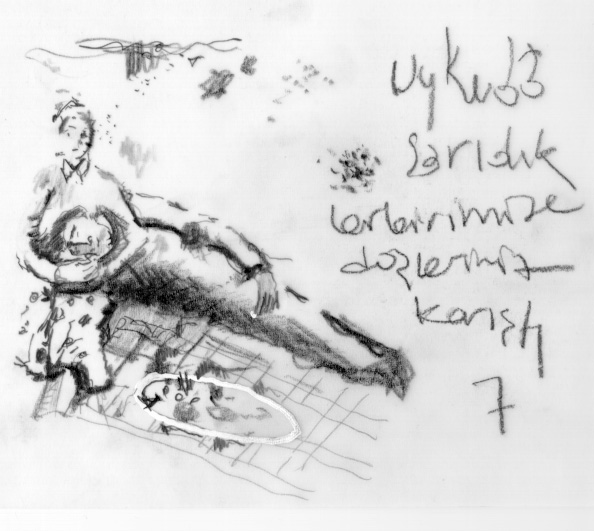 uykuda
sarıldık
birbirimize
düşlerimiz
karıştı
7